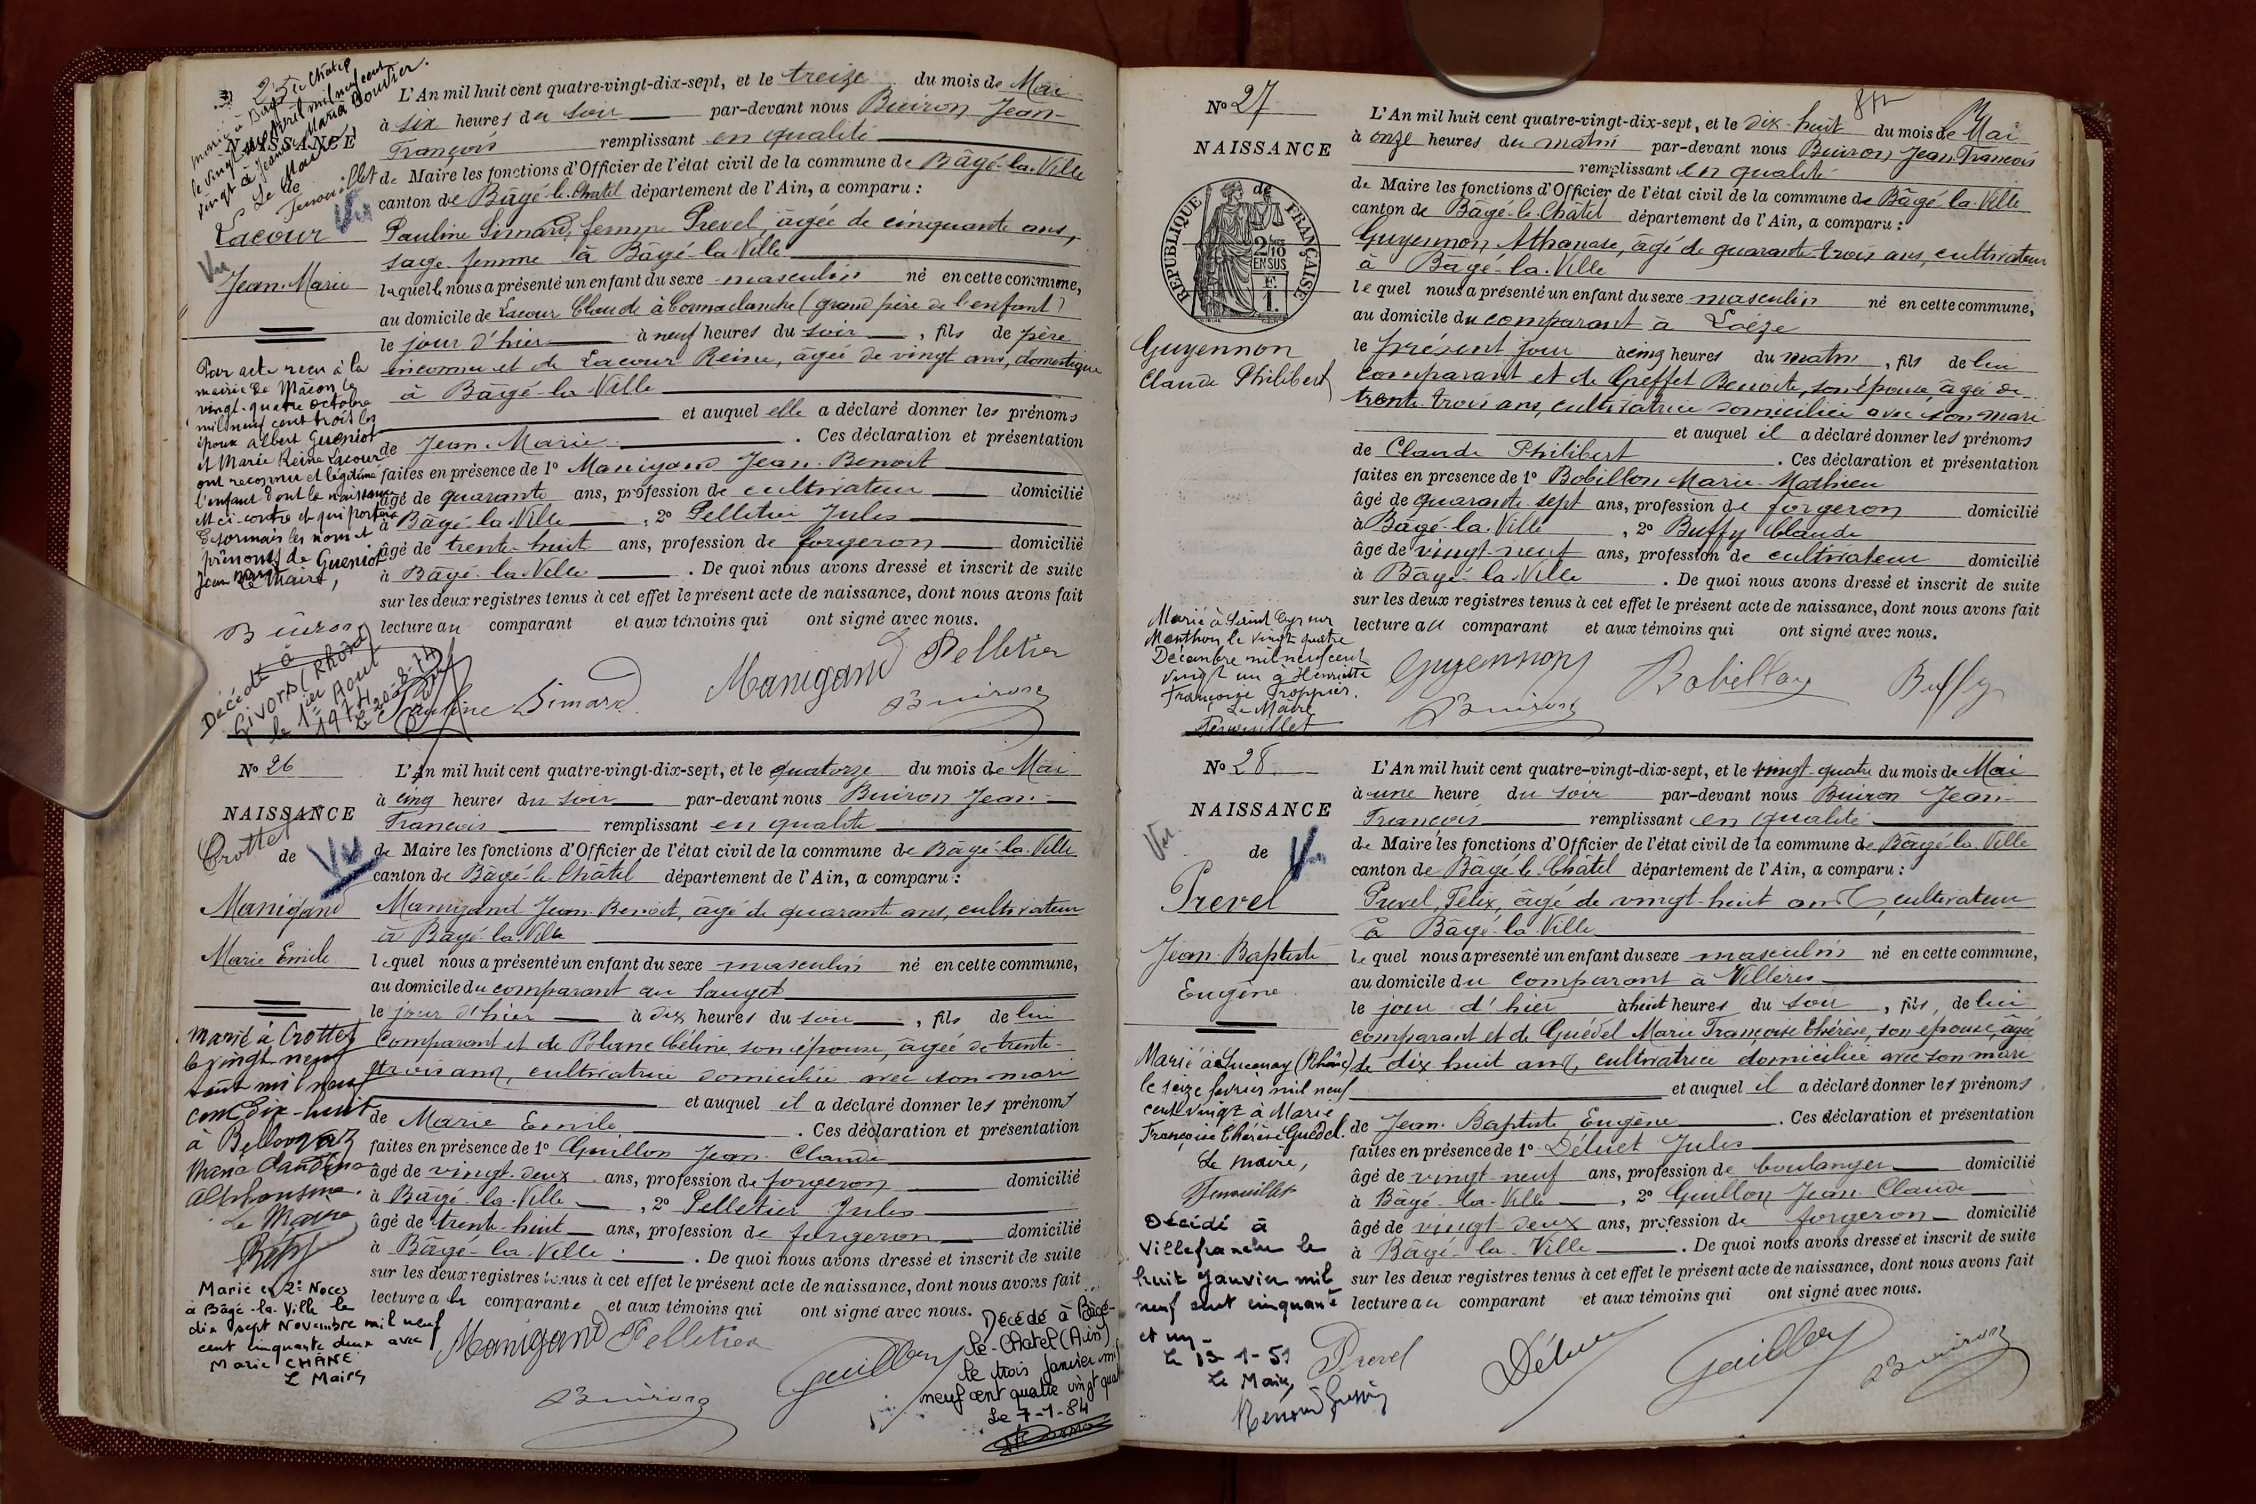 25
Marié à Bâgé le Châtel
le vingt sept Avril mil neuf cent
vingt à Jeanne Maria Bourlier.
Le Maire
NAISSANCE
de
Lacour
Vu
Vu
Jean-Marie
L'An mil huit cent quatre-vingt-dix-sept, et le treize du mois de Mai
à six heures du soir par-devant nous Buiron Jean-
François remplissant en qualité
de Maire les fonctions d'Officier de l'état civil de la commune de Bâgé-la-Ville
canton de Bâgé-le-Châtel département de l'Ain, a comparu :
Pauline Simard, femme Prevel, âgée de cinquante ans,
sage femme à Bâgé-la-Ville
laquelle nous a présenté un enfant du sexe masculin né en cette commune,
au domicile de Lacour Claude à (grand père de l'enfant)
le jour d'hier à neuf heures du soir, fils de père
inconnu et de Lacour Reine, âgée de vingt ans, domestique
à Bâgé-la-Ville
et auquel elle a déclaré donner les prénoms
de Jean-Marie. Ces déclaration et présentation
faites en présence de 1° Manigand Jean-Benoit
âgé de quarante ans, profession de cultivateur domicilié
à Bâgé-la-Ville, 2° Pelletier Jules
âgé de trente-huit ans, profession de forgeron domicilié
à Bâgé-la-Ville. De quoi nous avons dressé et inscrit de suite
sur les deux registres tenus à cet effet le présent acte de naissance, dont nous avons fait
lecture au comparant et aux témoins qui ont signé avec nous.
Par acte reçu à la
mairie de Mâcon le
vingt-quatre octobre
mil neuf cent trois les
époux Albert Gueniot
et Marie Reine Lacour
ont reconnu et légitimé
l'enfant dont la naissance
est ci-contre et qui portera
désormais les nom et
prénoms de Gueniot
Jean Marie
Le Maire,
Buiron
Décédé à
Givors (Rhône)
le 1er Aout
1974
Le 20-8-74
Pauline Simard
Manigand
Pelletier
Buiron
N° 26
NAISSANCE
Crottet
de
Vu
Manigand
Marie Emile
L'An mil huit cent quatre-vingt-dix-sept, et le quatorze du mois de Mai
à cinq heures du soir par-devant nous Buiron Jean-
François remplissant en qualité
de Maire les fonctions d'Officier de l'état civil de la commune de Bâgé-la-Ville
canton de Bâgé-le-Châtel département de l'Ain, a comparu :
Manigand Jean-Benoit, âgé de quarante ans, cultivateur
à Bâgé-la-Ville
lequel nous a présenté un enfant du sexe masculin né en cette commune,
au domicile du comparant au Sauget
le jour d'hier à dix heures du soir, fils de lui
comparant et de Blanc Céline, son épouse, âgée de trente-
trois ans, cultivatrice domiciliée avec son mari
et auquel il a déclaré donner les prénoms
de Marie Emile. Ces déclaration et présentation
faites en présence de 1° Guillon Jean-Claude
âgé de vingt-deux ans, profession de forgeron domicilié
à Bâgé-la-Ville, 2° Pelletier Jules
âgé de trente-huit ans, profession de forgeron domicilié
à Bâgé-la-Ville. De quoi nous avons dressé et inscrit de suite
sur les deux registres tenus à cet effet le présent acte de naissance, dont nous avons fait
lecture au comparant et aux témoins qui ont signé avec nous.
Marié à Crottet
le vingt neuf
août mil neuf
cent dix-huit
à
Maria Claudina
Alphonsine.
Le Maire
Marié en 2e Noces
à Bâgé-la-Ville le
dix sept Novembre mil neuf
cent cinquante deux avec
Marie CHÂNE
Le Maire
Manigand Pelletier
Buiron
Guillon
Décédé à Bâgé-
le-Chatel (Ain)
le trois Janvier mil
neuf cent quatre vingt quatre
Le 7-1-84
N° 27
NAISSANCE
de
RÉPUBLIQUE FRANÇAISE
2/10 EN SUS
F. 1.
Guyennon
Claude Philibert
L'An mil huit cent quatre-vingt-dix-sept, et le dix-huit du mois de Mai
à onze heures du matin par-devant nous Buiron Jean François
remplissant en qualité
de Maire les fonctions d'Officier de l'état civil de la commune de Bâgé-la-Ville
canton de Bâgé-le-Châtel département de l'Ain, a comparu :
Guyennon Athanase, âgé de quarante-trois ans, cultivateur
à Bâgé-la-Ville
lequel nous a présenté un enfant du sexe masculin né en cette commune,
au domicile du comparant à Loëze
le présent jour à cinq heures du matin, fils de lui
comparant et de Greffet Benoite, son épouse, âgée de
trente-trois ans, cultivatrice domiciliée avec son mari
et auquel il a déclaré donner les prénoms
de Claude Philibert. Ces déclaration et présentation
faites en présence de 1° Bobillon Marie-Mathieu
âgé de quarante sept ans, profession de forgeron domicilié
à Bâgé-la-Ville, 2° Buffy Claude
âgé de vingt-neuf ans, profession de cultivateur domicilié
à Bâgé-la-Ville. De quoi nous avons dressé et inscrit de suite
sur les deux registres tenus à cet effet le présent acte de naissance, dont nous avons fait
lecture au comparant et aux témoins qui ont signé avec nous.
Marié à Saint Cyr sur
Menthon le vingt quatre
Décembre mil neuf cent
vingt un à Henriette
Françoise Proppier.
Le Maire
Fenouillet
Guyennon
Buiron
Bobillon
Buffy
N° 28
NAISSANCE
Vu
de
Vu
Prevel
Jean-Baptiste
Eugène
L'An mil huit cent quatre-vingt-dix-sept, et le vingt-quatre du mois de Mai
à une heure du soir par-devant nous Buiron Jean-
François remplissant en qualité
de Maire les fonctions d'Officier de l'état civil de la commune de Bâgé-la-Ville
canton de Bâgé-le-Châtel département de l'Ain, a comparu :
Prevel, Félix, âgé de vingt-huit ans, cultivateur
à Bâgé-la-Ville
lequel nous a présenté un enfant du sexe masculin né en cette commune,
au domicile du comparant à Villères
le jour d'hier à huit heures du soir, fils de lui
comparant et de Guédel Marie Françoise Thérèse, son épouse, âgée
de dix huit ans, cultivatrice domiciliée avec son mari
et auquel il a déclaré donner les prénoms
de Jean-Baptiste Eugène. Ces déclaration et présentation
faites en présence de 1° Déluet Jules
âgé de vingt-neuf ans, profession de boulanger domicilié
à Bâgé-la-Ville, 2° Guillon Jean-Claude
âgé de vingt-deux ans, profession de forgeron domicilié
à Bâgé-la-Ville. De quoi nous avons dressé et inscrit de suite
sur les deux registres tenus à cet effet le présent acte de naissance, dont nous avons fait
lecture au comparant et aux témoins qui ont signé avec nous.
Marié à Lucenay (Rhône)
le seize février mil neuf
cent vingt à Marie
Françoise Thérèse Guédel.
Le Maire,
Fenouillet
Décédé à
Villefranche le
huit Janvier mil
neuf cent cinquante
et un
Le 13-1-51
Le Maire,
Prevel
Déluet
Guillon
Buiron